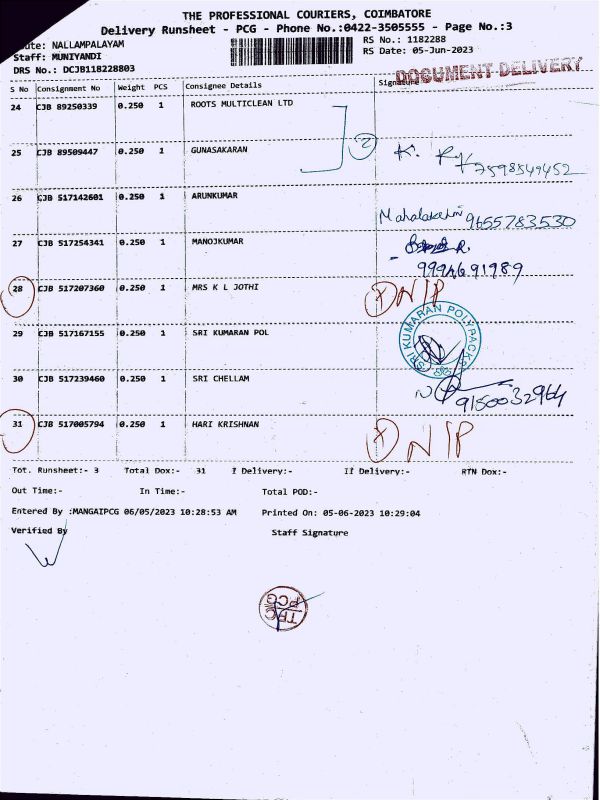 THE PROFESSIONAL COURIERS, COIMBATORE
Delivery Runsheet - PCG - Phone No.:0422-3505555 - Page No.:3
ute: NALLAMPALAYAM
RS No.: 1182288
Staff: MUNIYANDI
RS Date: 05-Jun-2023
DRS No.: DCJB118228803
DOCUMENT DELIVERY
S No Consignment No Weight PCS Consignee Details Signature
24 CJB 89250339 0.250 1 ROOTS MULTICLEAN LTD
2
25 CJB 89509447 0.250 1 GUNASAKARAN K.
7598549452
26 CJB 517142601 0.250 1 ARUNKUMAR
Mahalakshmi 9655783530
27 CJB 517254341 0.250 1 MANOJKUMAR
9994691989
28 CJB 517207360 0.250 1 MRS K L JOTHI DNIP
29 CJB 517167155 0.250 1 SRI KUMARAN POL
SRI KUMARAN POLYPACKS
30 CJB 517239460 0.250 1 SRI CHELLAM
9150032964
31 CJB 517005794 0.250 1 HARI KRISHNAN DNIP
Tot. Runsheet:- 3 Total Dox:- 31 I Delivery:- II Delivery:- RTN Dox:-
Out Time:- In Time:- Total POD:-
Entered By :MANGAIPCG 06/05/2023 10:28:53 AM Printed On: 05-06-2023 10:29:04
Verified By Staff Signature
TPC
PCG